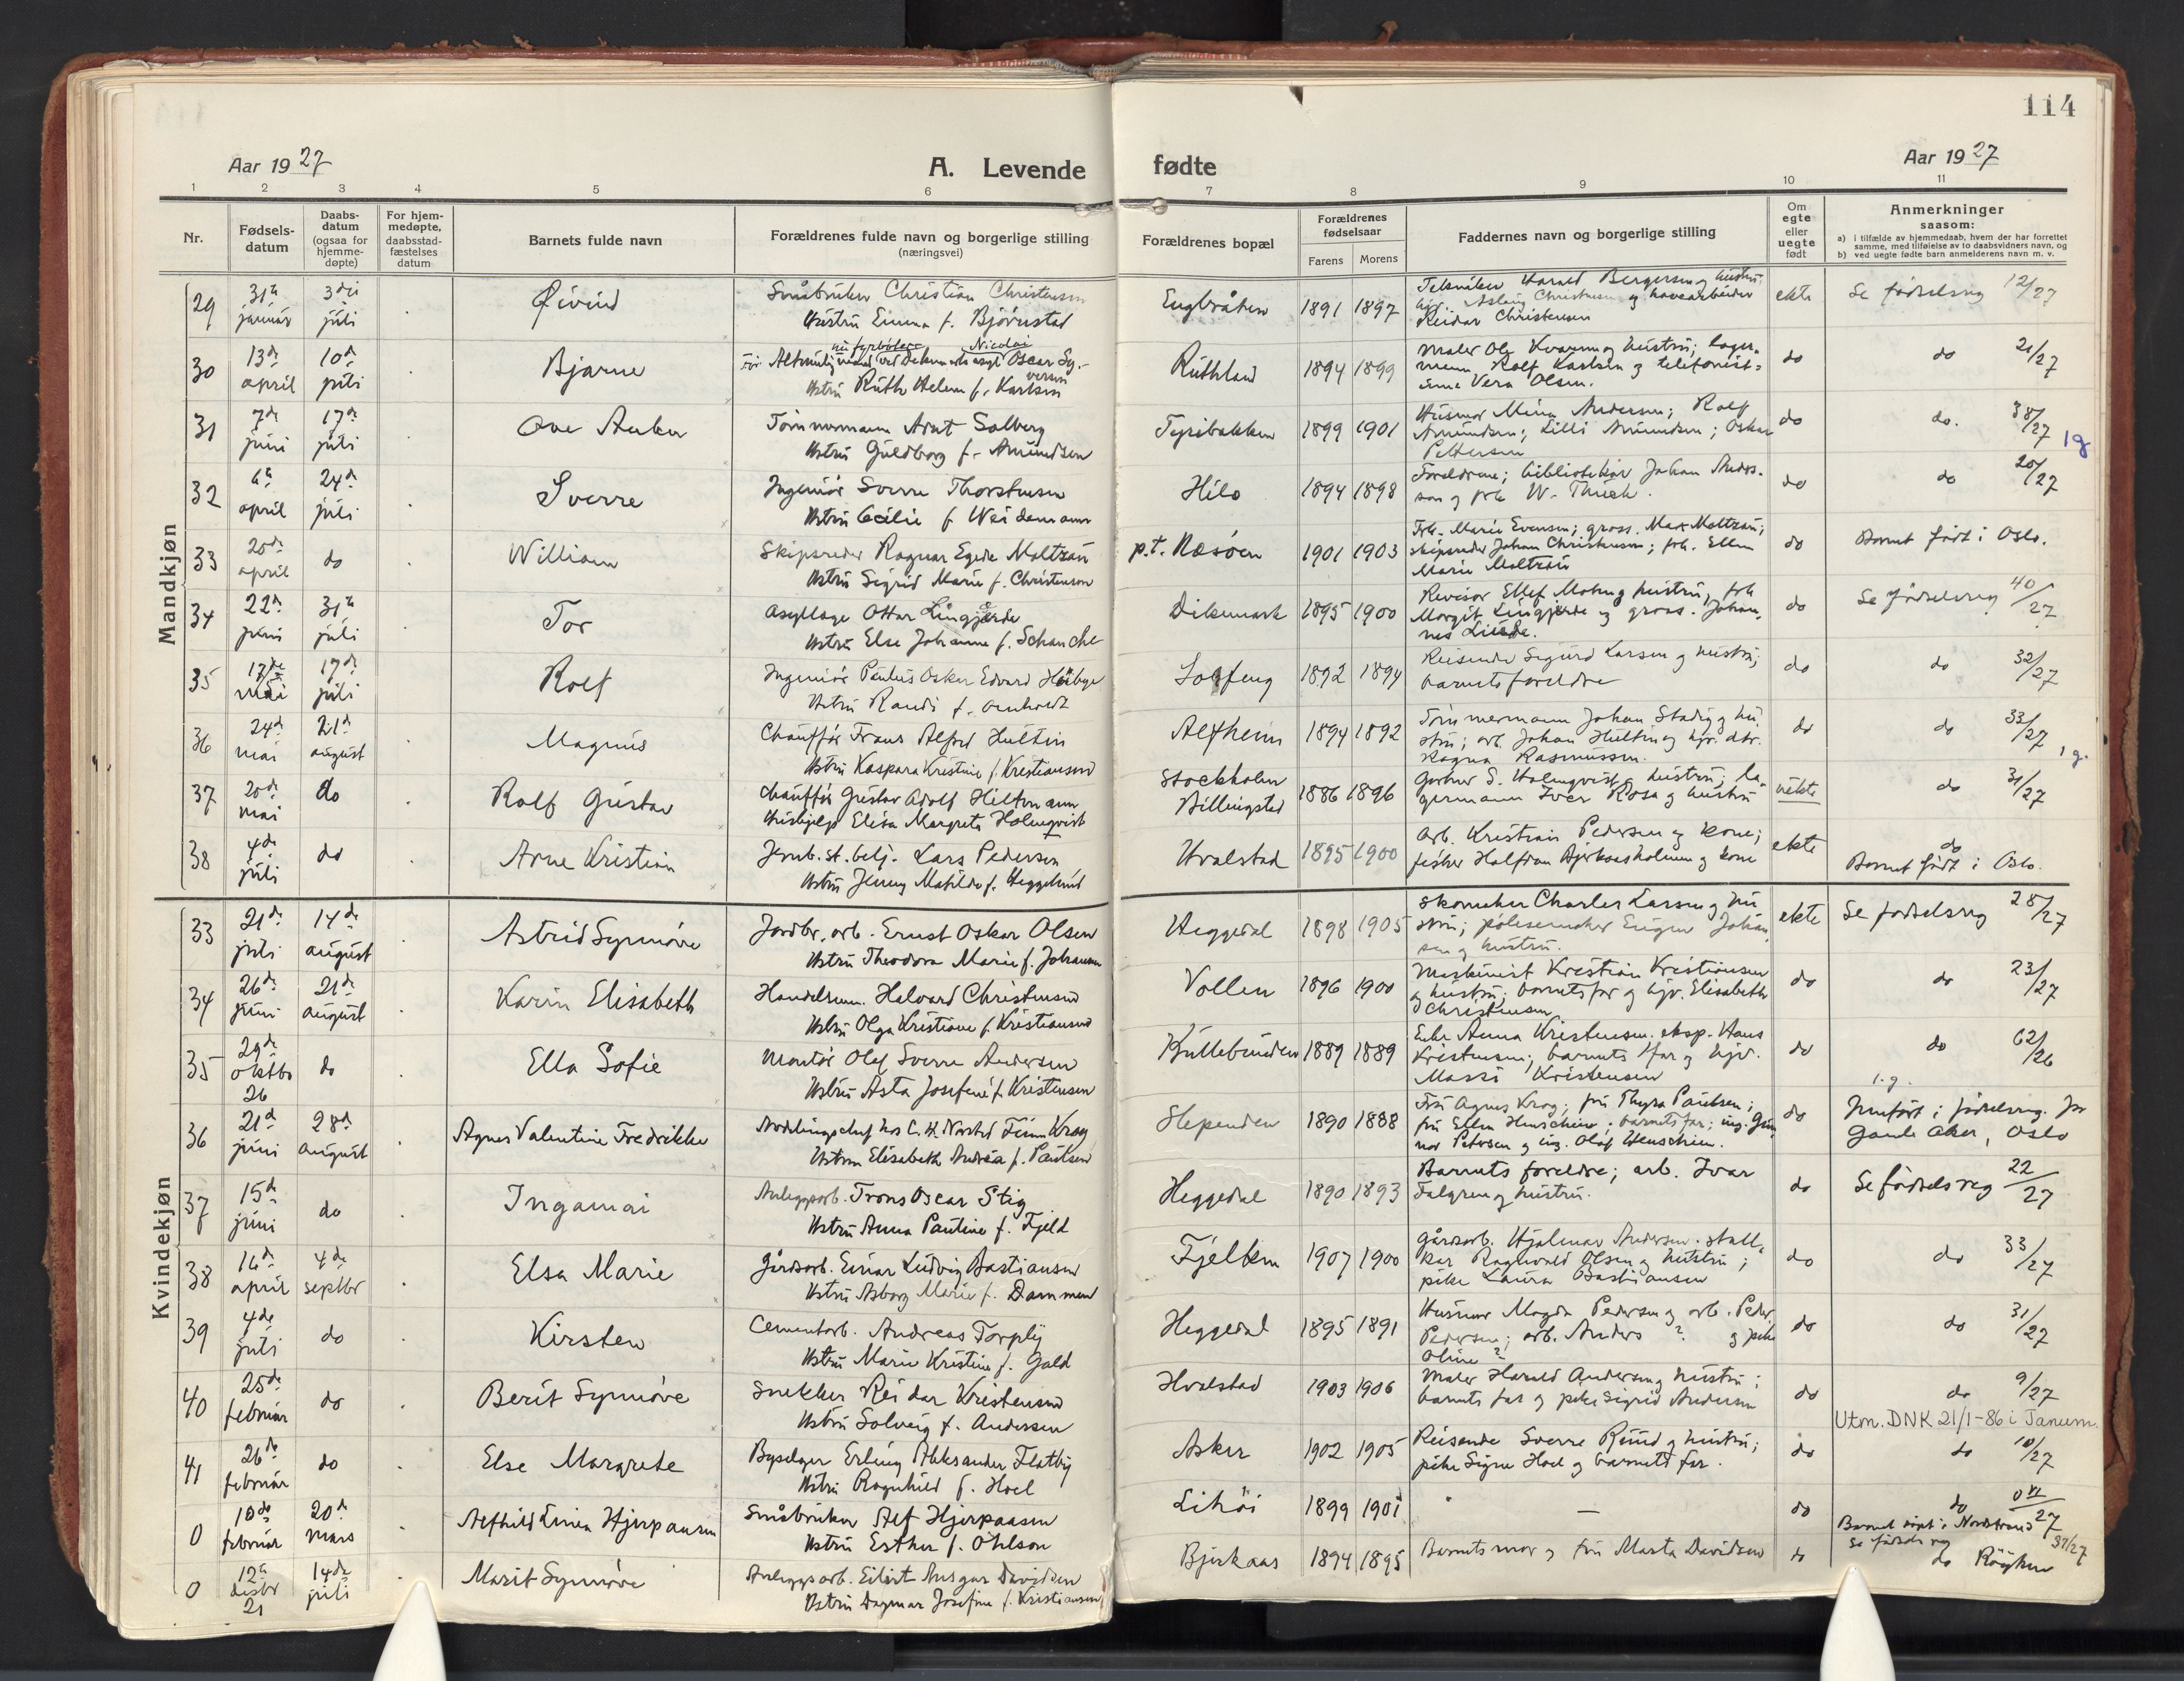 114
Aar 1927
A. Levende fødte
Aar 1927
1 2 3 4 5 6 7 8 9 10 11
Nr.
Fødsels-
datum
Daabs-
datum
(ogsaa for
hjemme-
døpte)
For hjem-
medøpte,
daabsstad-
fæstelses
datum
Barnets fulde navn
Forældrenes fulde navn og borgerlige stilling
(næringsvei)
Forældrenes bopæl
Forældrenes
fødselsaar
Farens Morens
Faddernes navn og borgerlige stilling
Om
egte
eller
uegte
født
Anmerkninger
saasom:
a) i tilfælde av hjemmedaab, hvem der har forrettet
samme, med tilføielse av to daabsvidners navn, og
b) ved uegte fødte barn anmelderens navn m. v.
Mandkjøn
29 31te januar 3die juli Øivind
Småbruker Christian Christensen
Hustru Emma f. Bjørnstad
Engbråten 1891 1897
Harald Bergersen og hustru;
Christensen og havearbeider
Reidar Christensen
ekte Se fødselsreg 12/27
30 13de april 10de juli Bjarne
nu fyrbøter Nicolai
Oscar Sy-
versen
Hstru Ruth Helene f. Karlsen
Ruthland 1894 1899
Maler Ole Kvarum og hustru; lager-
mann Rolf Karlsen og telefonist-
inne Vera Olsen.
do do 21/27
31 7de juni 17de juli Ove Anker
Tømmermann Arnt Solberg
Hstru Guldborg f. Amundsen
Tyribakken 1899 1901
Husmor Mina Andersen; Rolf
Amundsen; Lilli Amundsen; Oskar
Pettersen
do do. 38/27 1g
32 6te april 24de juli Sverre
Ingeniør Sverre Thorstensen
Hstru Cecilie f. Weidemann
Hilo 1894 1898
Foreldrene; bibliotekar Johan
og frk W.
do do 20/27
33 20de april do William
Skipsreder Ragnar Egede Moltzau
Hstru Sigrid Marie f. Christensen
p.t. Næsøen 1901 1903
Frk. Marie Evensen; gross. Max Moltzau;
skipsreder Johan Christensen; frk. Ellen
Marie Moltzau
do Barnet født i Oslo.
34 22de juni 31te juli Tor
Asyllæge Ottar Lingjærde
Hstru Else Johanne f. Schanche
Dikemark 1895 1900
Revisor Ellef Mohn og hustru, frk
Margit Lingjærde og gross. Johan-
nes
do Se fødselsreg 40/27
35 17de mai 17de juli Rolf
Ingeniør Paulus Oskar Edvard
Hstru Randi f.
Solfeng 1892 1894
Reisende Sigurd Larsen og hustru;
barnets foreldre
do do 32/27
36 24de mai 21de august Magnus
Chauffør Frans Alfred Hultin
Hstru Kaspara Kristine f. Kristiansen
Alfheim 1894 1892
Tømmermann Johan Stadig og hu-
stru; arb. Johan Hultin og hjv. dtr.
Ragna Rasmussen.
do do 33/27 1g.
37 20de mai do Rolf Gustav
Chauffør Gustav Adolf Hiltmann
Hushjelp Elisa Margreta Holmqvist
Stockholm
Billingstad 1886 1896
Gartner S. Holmqvist og hustru; la-
germann Iver Rosa og hustru
uekte do 31/27
38 4de juli do Arne Kristian
Jernb.st.betj. Lars Pedersen
Hstru Jenny Matilde f. Heggelund
Hvalstad 1895 1900
Arb. Kristian Pedersen og kone;
fisker Halfdan Bjerkaasholmen og kone
ekte do
Barnet født i Oslo.
Kvindekjøn
33 21de juli 14de august Astrid Synnøve
Jordbr. arb. Ernst Oskar Olsen
Hstru Theodora Marie f. Johansen
Heggedal 1898 1905
Skomaker Charler Larsen og hu
stru; pølsemaker Eugen Johan-
sen og hustru.
ekte Se fødselsreg 28/27
34 26de juni 21de august Karin Elisabeth
Handelsm. Halvard Christensen
Hstru Olga Kristiane f. Kristiansen
Vollen 1896 1900
Maskinist Kristian Kristiansen
og hustru; barnets far og hjv. Elisabeth
Christensen
do do 23/27
35 29de oktbr 26 do Ella Sofie
Montør Olaf Sverre Andersen
Hstru Asta Josefine f. Kristensen
Kullebunden 1889 1889
Enke Anna Kristensen. eksp. Hans
Kristensen; barnets far og hjv.
Massi Kristensen
do do 62/26
1.g.
36 21de juni 28de august Agnes Valentine Fredrikke
Avdelingschef hos C. H. Finn Krog
Hstru Elisabeth Andrea f. Paulsen
Slependen 1890 1888
Fru Agnes Krog; fru Thyra Paulsen;
fru Ellen Henschien; barnets far; ing. Gun
nar Petersen og ing. Olaf Henschien.
do Innført i fødselsreg. for
Gamle Aker, Oslo
37 15de juni do Ingamai
Anleggsarb. Trons Oscar Stig
Hstru Anna Pauline f. Fjeld
Heggedal 1890 1893
Barnets foreldre; arb. Ivar
Falgren og hustru.
do Se fødselsreg 22/27
38 16de april 4de septbr Elsa Marie
Gårdsarb. Einar Ludvig Bastiansen
Hstru Asborg Marie f. Dammen
Fjeltun 1907 1900
Gårdsarb. Hjalmar Andersen. stall-
kar Ragnvald Olsen og hustru;
pike Laura Bastiansen
do do 33/27
39 4de juli do Kirsten
Cementarb. Andreas Torply
Hstru Marie Kristine f. Gald
Heggedal 1895 1891
Husmor Magda Pedersen og arb. Peder
Pedersen; arb. Anders ? og pike
Oline ?
do do 31/27
40 25de februar do Berit Synnøve
Snekker Reidar Kristensen
Hstru Solveig f. Anderssen
Hvalstad 1903 1906
Maler Harald Andersen og hustru;
barnets far og pike Sigrid Andersen
do do 9/27
Utm. DNK 21/1-86 i Tanum.
41 26de februar do Else Margrete
Erling Aleksander Flatby
Hstru Ragnhild f. Hoel
Asker 1902 1905
Reisende Sverre Ruud og hustru;
pike Signe Hoel og barnets far.
do do 10/27
0 10de februar 20de mars Alfhild Linea Hjerpaasen
Småbruker Alf Hjerpaasen
Hstru Esther f. Ohlson
Lihöi 1899 1901
—
do do
Barnet døpt i Nordstrand
0 12te desbr 21 14de juli Marit Synnøve
Anleggsarb. Eilert Ansgar Davidsen
Hstru Dagmar Josefine f. Kristiansen
Bjerkaas 1894 1895
Barnets mor og fru Marta Davidsen
do Se fødselsreg 37/27
do Røyken